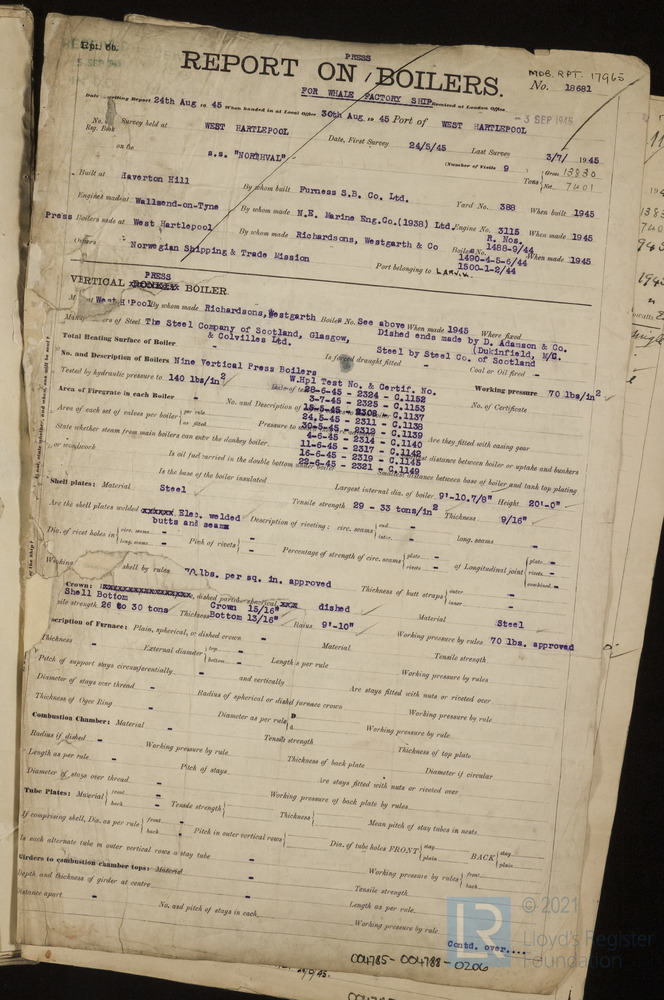 Rpt. 6b.
PRESS
REPORT ON / BOILERS.
MDB. RPT. 17965
No. 18681
FOR WHALE FACTORY SHIP
Received at London Office
Date of writing Report 24th Aug 19 45 When handed in at Local Office 30th Aug. 19 45 Port of WEST HARTLEPOOL
- 3 SEP 1945
No. in Reg. Book Survey held at WEST HARTLEPOOL Date, First Survey 24/5/45 Last Survey 3/7/ 1945
on the s.s. "NORHVAL" (Number of Visits 9 Tons { Gross 13830 Net 7401
Built at Haverton Hill By whom built Furness S.B. Co. Ltd. Yard No. 388 When built 1945
Engines made at Wallsend-on-Tyne By whom made N.E. Marine Eng.Co.(1938) Ltd. Engine No. 3115 When made 1945
Press Boilers made at West Hartlepool By whom made Richardsons, Westgarth & Co Boiler No. R. Nos. 1488-9/44 1490-4-5-6/44 1500-1-2/44 When made 1945
Owners Norwegian Shipping & Trade Mission Port belonging to LARVIK.
PRESS
VERTICAL DONKEY BOILER.
Made at West H'Pool By whom made Richardsons, Westgarth Boiler No. See above When made 1945 Where fixed
Makers of Steel The Steel Company of Scotland, Glasgow, & Colvilles Ltd. Dished ends made by D. Adamson & Co. (Dukinfield, M/C. Steel by Steel Co. of Scotland
Total Heating Surface of Boiler - Is forced draught fitted - Coal or Oil fired -
No. and Description of Boilers Nine Vertical Press Boilers Working pressure 70 lbs/in2
Tested by hydraulic pressure to 140 lbs/in2 W.Hpl Test No. & Certif. No. No. of Certificate
28-6-45 - 2324 - C.1152
3-7-45 - 2325 - C.1153
15-5-45 - 2308 - C.1137
24.5-45 - 2311 - C.1138
30-5-45 - 2312 - C.1139
4-6-45 - 2314 - C.1140
11-6-45 - 2317 - C.1142
16-6-45 - 2319 - C.1145
22-6-45 - 2321 - C.1149
Area of Firegrate in each Boiler - No. and Description of
Area of each set of valves per boiler { per rule as fitted Pressure to
State whether steam from main boilers can enter the donkey boiler Are they fitted with easing gear
Smallest distance between boiler or uptake and bunkers or woodwork Is oil fuel carried in the double bottom under boiler Smallest distance between base of boiler and tank top plating
Is the base of the boiler insulated Largest internal dia. of boiler 9'-10.7/8" Height 20'-0"
Shell plates: Material Steel Tensile strength 29 - 33 tons/in2 Thickness 9/16"
Are the shell plates welded xxxxxx Elec. welded butts and seams Description of riveting: circ. seams { end - inter. - long. seams -
Dia. of rivet holes in { circ. seams - long. seams - Pitch of rivets { - Percentage of strength of circ. seams { plate - rivets - of Longitudinal joint { plate - rivets - combined -
Working shell by rules 70 lbs. per sq. in. approved Thickness of butt straps { outer - inner -
Crown: xxxxxxxxxxxxxxxxxx, dished partial spherical xxx dished Material Steel
Shell Bottom
tensile strength 26 to 30 tons Thickness Crown 15/16" Bottom 13/16" Radius 9'-10" Working pressure by rules 70 lbs. approved
Description of Furnace: Plain, spherical, or dished crown - Material - Tensile strength
Thickness - External diameter { top - bottom - Length as per rule Working pressure by rules
Pitch of support stays circumferentially - and vertically Are stays fitted with nuts or riveted over
Diameter of stays over thread - Radius of spherical or dished furnace crown Working pressure by rule
Thickness of Ogee Ring - Diameter as per rule { D d Working pressure by rule
Combustion Chamber: Material - Tensile strength Thickness of top plate
Radius if dished - Working pressure by rule Thickness of back plate Diameter if circular
Length as per rule - Pitch of stays Are stays fitted with nuts or riveted over
Diameter of stays over thread - Working pressure of back plate by rules
Tube Plates: Material { front - back - Tensile strength { Thickness { Mean pitch of stay tubes in nests
If comprising shell, Dia. as per rule { front - back - Pitch in outer vertical rows { Dia. of tube holes FRONT { stay plain BACK { stay plain
Is each alternate tube in outer vertical rows a stay tube - Working pressure by rules { front back
Girders to combustion chamber tops: Material - Tensile strength
Depth and thickness of girder at centre - Length as per rule
Distance apart - No. and pitch of stays in each Working pressure by rule
Contd. over....
004785-004788-0206
© 2021
LR
Lloyd's Register
Foundation